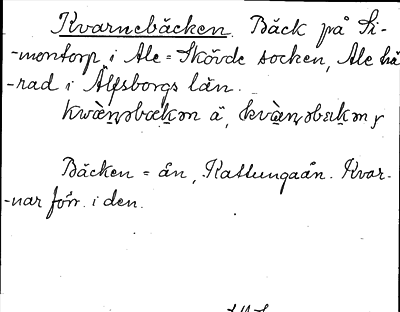 Kvarnebäcken. Bäck på Si-
-montorp i Ale-Skövde socken, Ale hä
-rad i Älfsborgs län.
Bäcken = ån, Kattungaån. Kvar-
-nar förr i den.